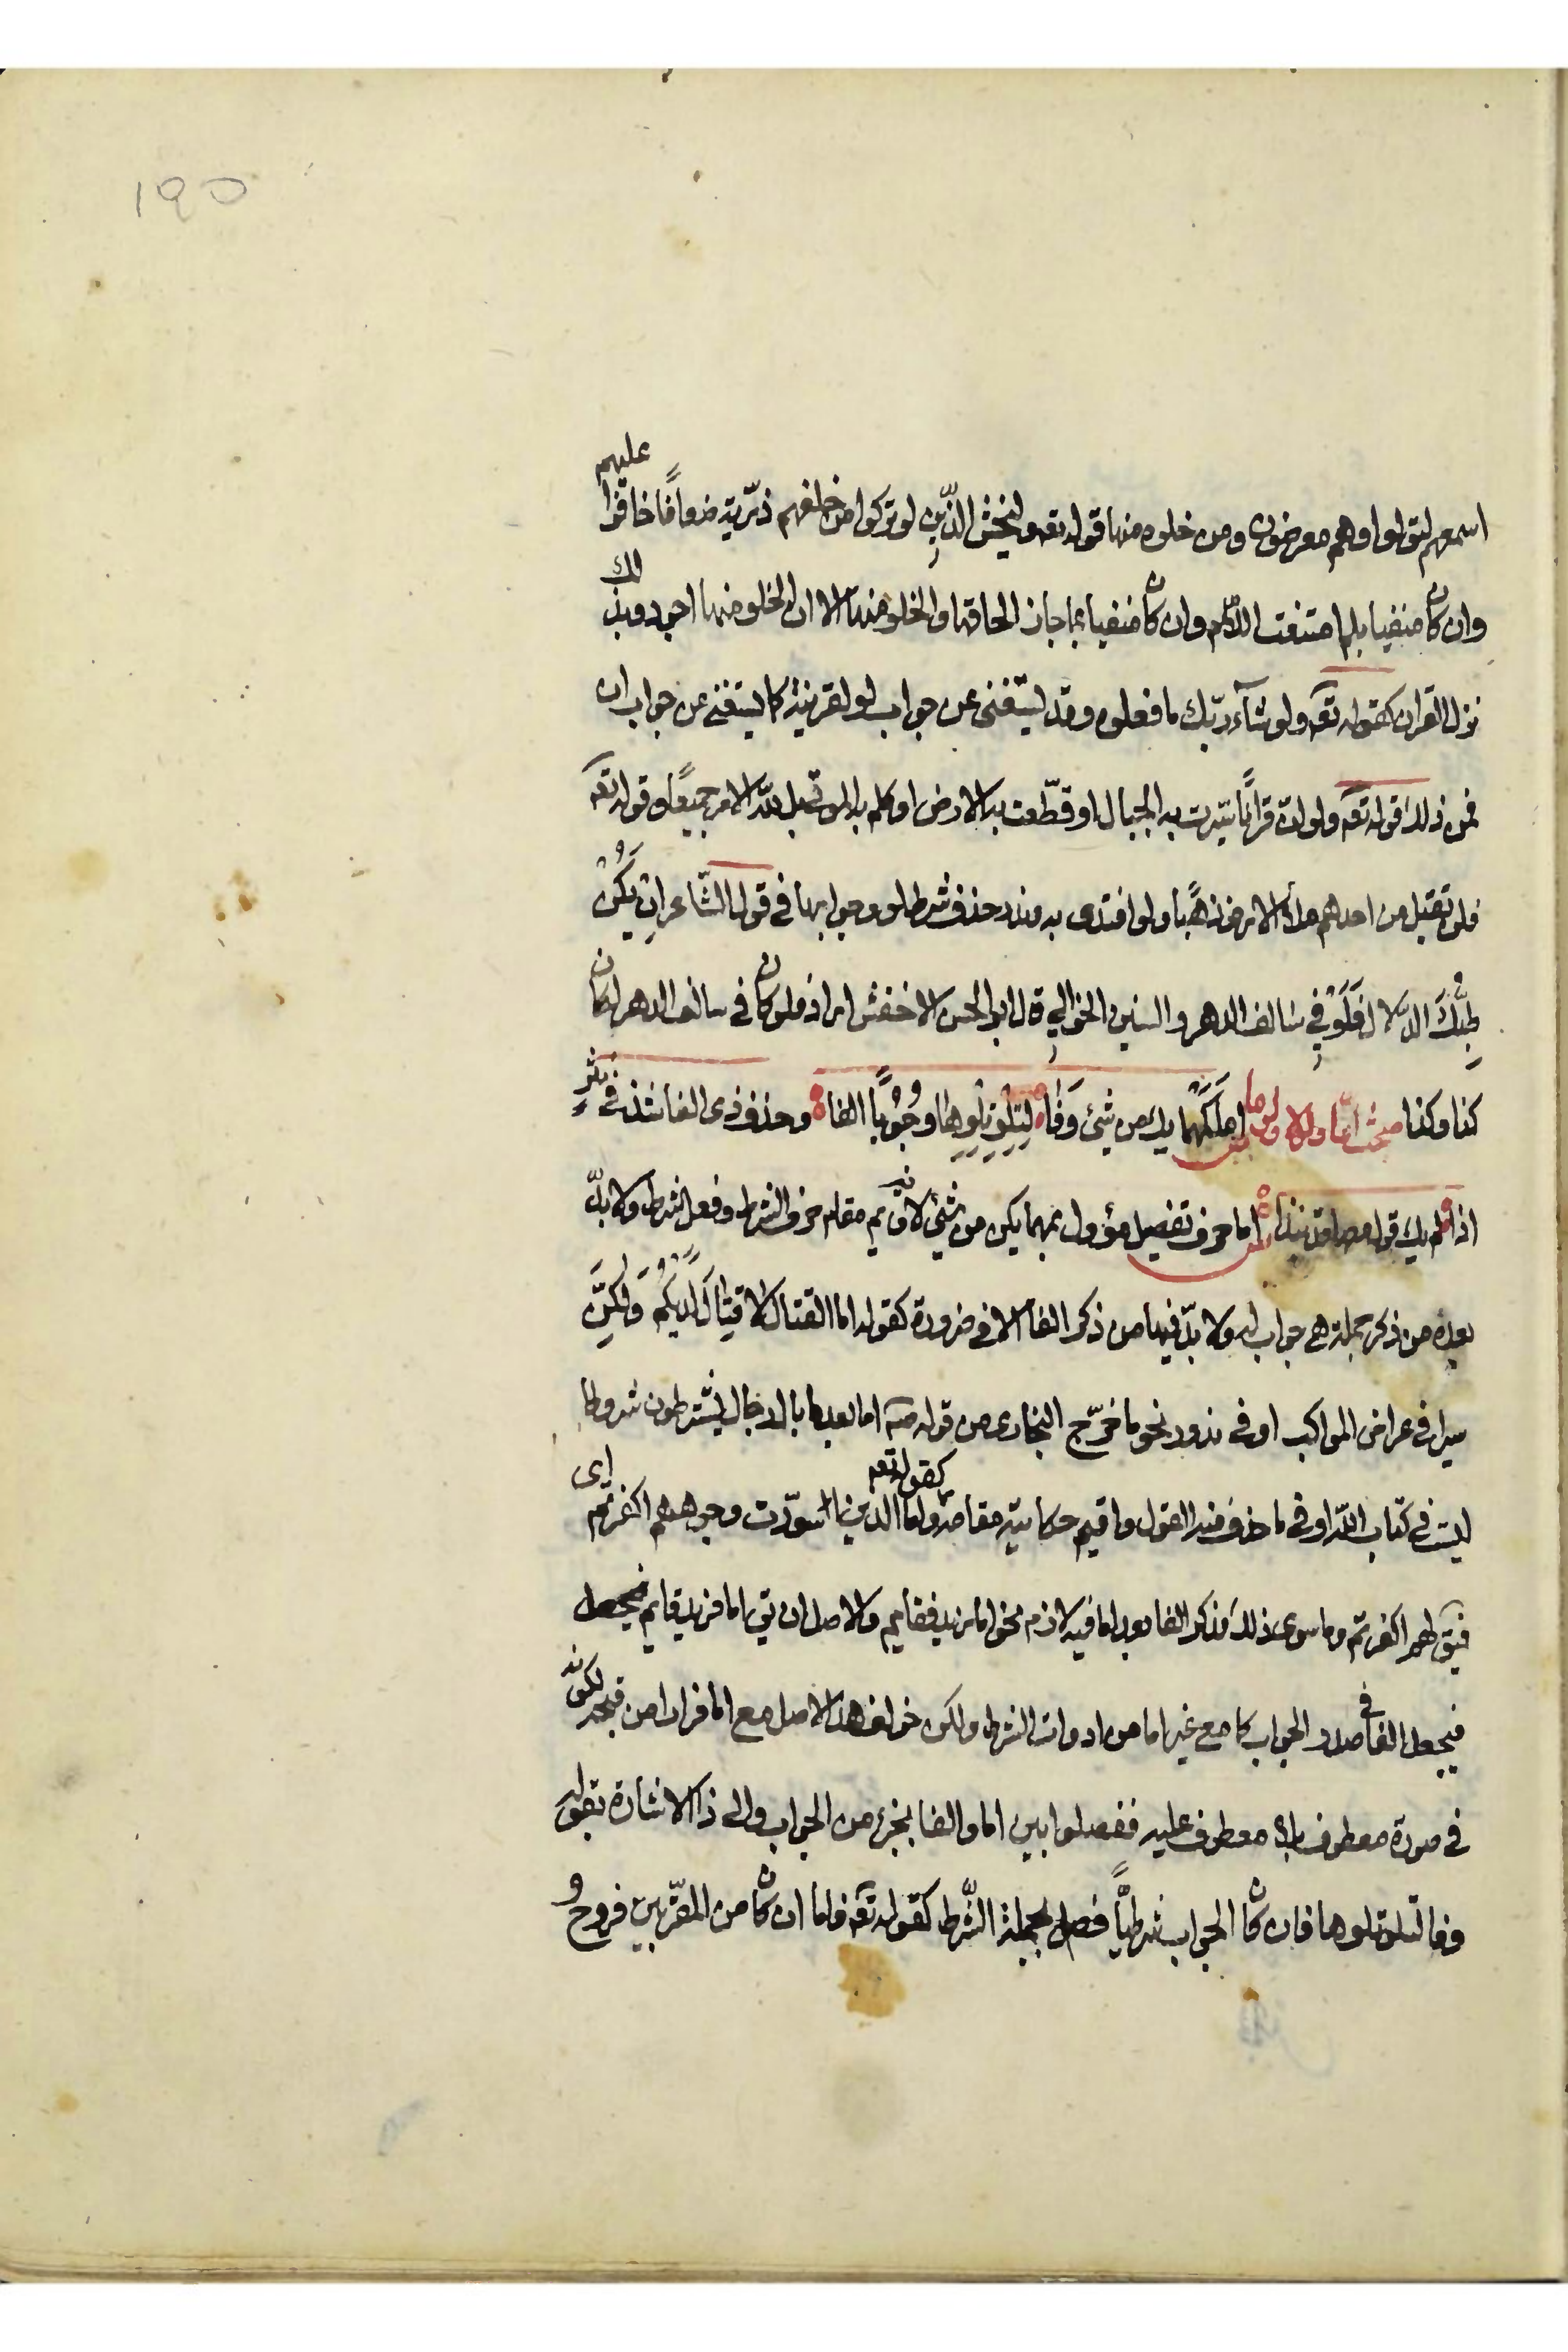 ١٩٥
اسمعهم لتولوا وهم معرضون ومن خلوه منها قوله تعه وليخش الّذين لو تركوا من خلفهم ذرّية ضعافًا خافوا عليهم
وان كان منفيا بلم امتنعت اللام وان كان منفيا بما جاز الحاقها والخلو منها الا ان الخلو منها اجود وبذلك
نزل القران كقوله تعه ولو شآء ربّك ما فعلوه وقد يستغنى عن جواب لو لقرينة كما يستغنى عن جواب ان
فمن ذلك قوله تعه ولو انّ قرانًا سيّرت به الجبال او قطّعت به الارض او كلم به الموتى بل لله الامر جميعًا وقوله تعه
فلن تقبل من احدهم ملأ الارض ذهبًا ولو افتدى به وندر حذف شرط لو وجوابها فى قول الشّاعر ان يكُنْ
طِبُّكَ الدلال فَلَوْ فِي سالف الدهر والسنين الخوالي قال ابو الحسن الاخفش اراد فلو كان فى سالف الدهر لكان
كذا وكذا مبحث امّا ولولا ولوما امّا كَمَهْما يك من شئ وَفَا لِتِلْوِ تِلْوِها وجُوْبًا الفا وحذف ذى الفا شذ فى نثرٍ
اذا لم يك قول معها قد نبذا اما حرف تفصيل مؤول بمهما يكن من شئ لانه قايم مقام حرف الشرط وفعل شرط ولا بدّ
بعده من ذكر جملة هى جواب له ولا بدّ فيها من ذكر الفا الا فى ضرورة كقوله اما القتال لا قِتَالَ لَدَيْكُمُ وَلكِنَّ
سيرا فى عراض المواكب او فى ندور نحو ما خرّج البخارى من قوله صه اما بعد ما بال رجال يشترطون شروطا
ليست فى كتاب اللّه او فى ما حذف منه القول واقيم حكايته مقامه كقوله تعه واما الذين اسودّت وجوههم اكفرتم اى
فيق لهم اكفرتم وما سوى ذلك فذكر الفا بعد اما فيه لازم نحو اما زيد فقايم والاصل ان يق اما فزيد قايم
فيجعل الفا فى صدر الجواب كما مع غير اما من ادوات الشرط ولكن خولف هذا الاصل مع اما فرارا من قبحه لكونه
فى صورة معطوف بلا معطوف عليه ففصلوا بين اما والفا بجزء من الجواب والى ذا الاشارة بقوله
وفا لتلو تلوها فان كان الجواب شرطيًّا فصل بجملة الشّرط كقوله تعه فاما ان كان من المقرّبين فروحُ